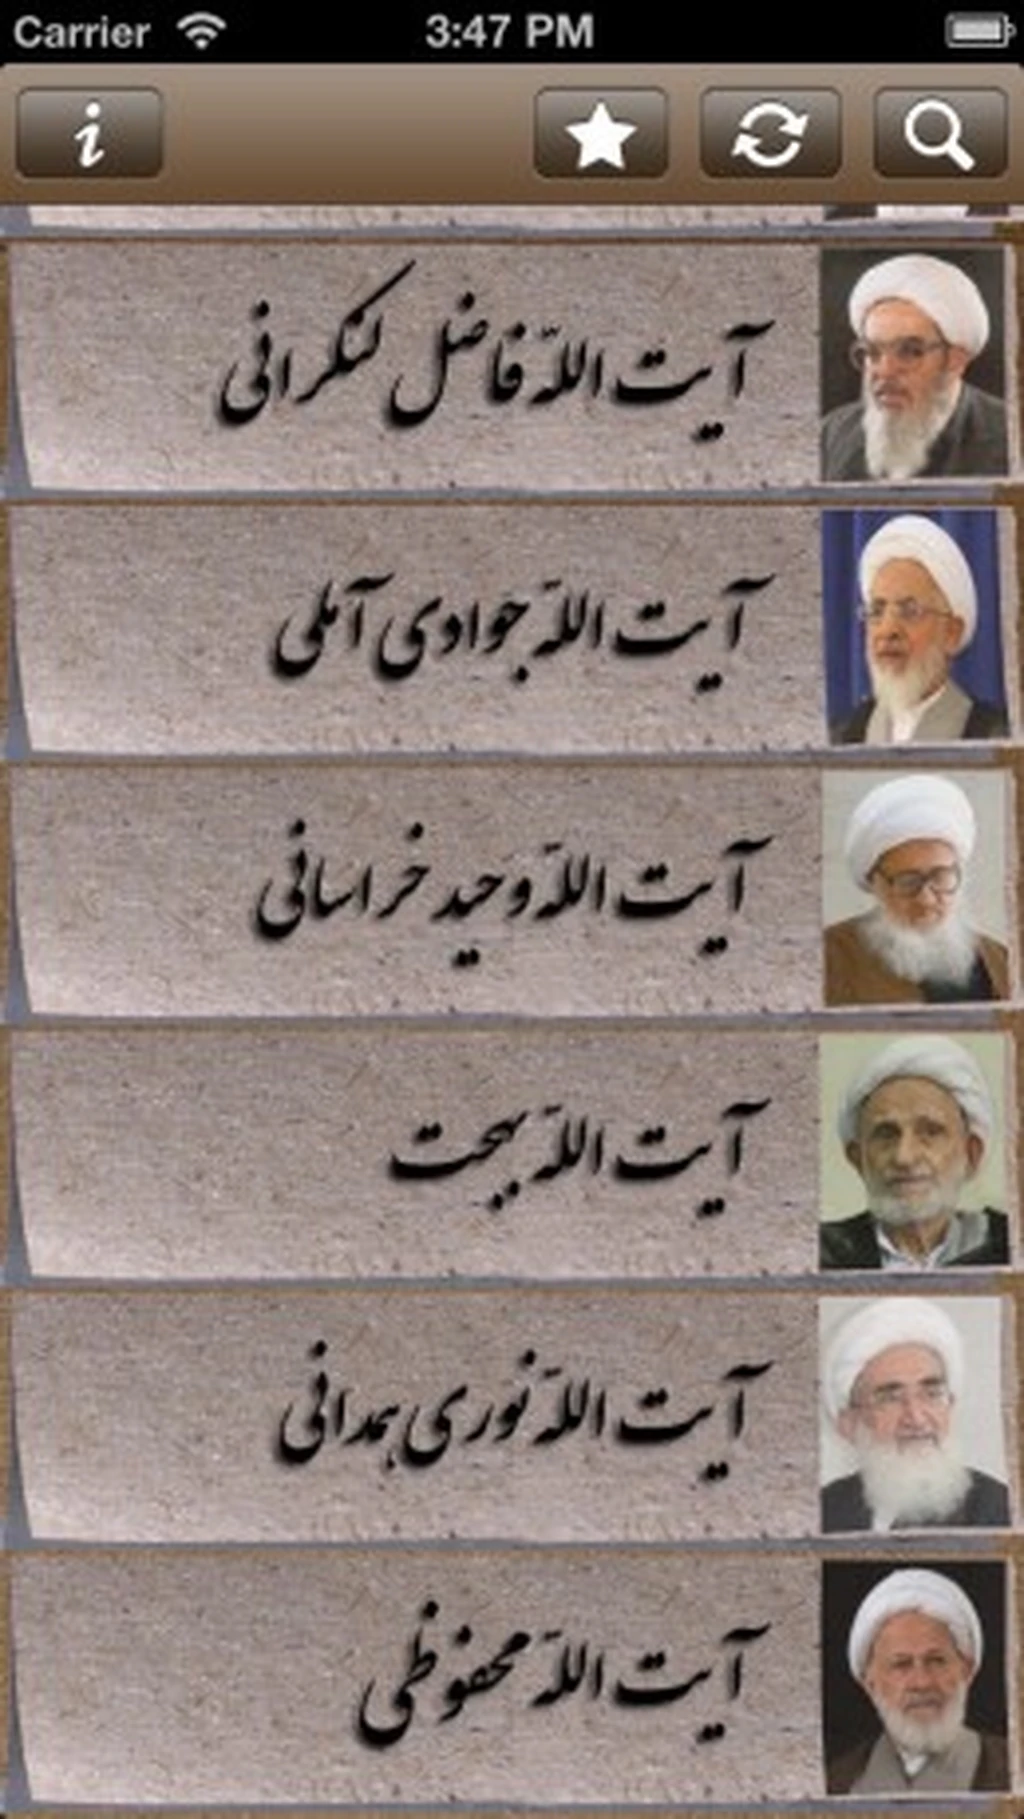 Carrier 3:47 PM
آیت اللّه فاضل لنکرانی
آیت اللّه جوادی آملی
آیت اللّه وحید خراسانی
آیت اللّه بهجت
آیت اللّه نوری همدانی
آیت اللّه محفوظی